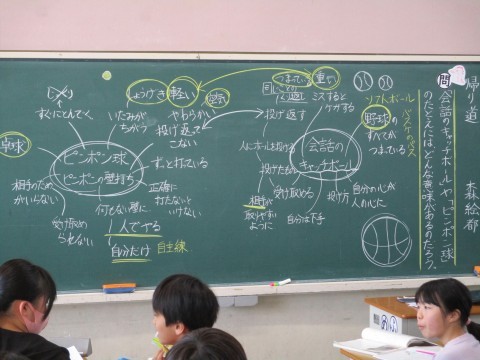 帰り道
森絵都
問
「会話のキャッチボール」や「ピンポン球」
のたとえには、どんな意味があるのだろう。
ソフトボール
バスケのパス
野球の
すべてが
つまっている
会話の
キャッチボール
重い
つまっている
ミスすると
ケガする
投げ返す
人にボールを投げる
投げたもの
受け止める
相手が
取りやすい
ように
投げ方
自分の心が
人の心に
自分は下手
ピンポン球
ピンポンの壁打ち
卓球
しょうげき
軽い
空気
すぐにとんでく
いたみが
ちがう
やわらかい
投げ返して
こない
ずっと打っている
正確に
打たないと
いけない
何もない壁に
1人でする
自分だけ
自主練
受け取め
られない
相手のため
がいらない